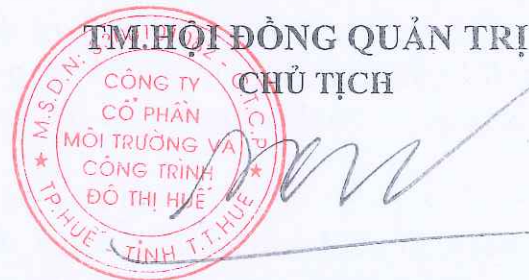 TM.HỘI ĐỒNG QUẢN TRỊ
CHỦ TỊCH
M.S.D.N:
C.T.C.P
CÔNG TY
CỔ PHẦN
MÔI TRƯỜNG VÀ
CÔNG TRÌNH
ĐÔ THỊ HUẾ
TP.HUẾ - TỈNH T.T.HUẾ